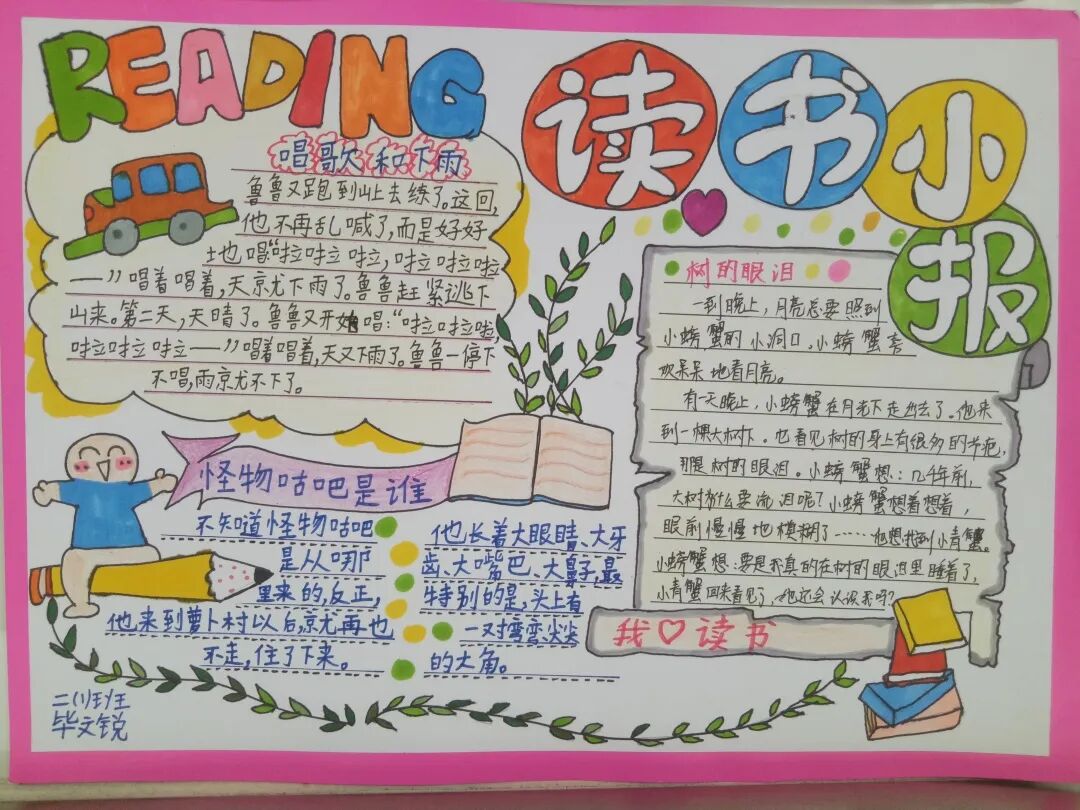 READING
读书小报
唱歌和下雨
鲁鲁又跑到山上去练了。这回,
他不再乱喊了,而是好好
地唱“啦啦啦,啦啦啦
——”唱着唱着,天就下雨了。鲁鲁赶紧逃下
山来。第二天,天晴了。鲁鲁又开始唱:“啦啦啦,
啦啦啦——”唱着唱着,天又下雨了。鲁鲁一停下
不唱,雨就不下了。
怪物咕吧是谁
不知道怪物咕吧
是从哪
里来的,反正,
他来到萝卜村以后,就再也
不走,住了下来。
他长着大眼睛、大牙
齿、大嘴巴、大鼻子,最
特别的是,头上有
一对弯弯尖尖
的大角。
树的眼泪
一到晚上,月亮总要照到
小螃蟹的小洞口。小螃蟹喜
欢呆呆地看月亮。
有一天晚上,小螃蟹在月光下走出去了。他来
到一棵大树下。也看见树的身上有很多的节疤,
那是树的眼泪。小螃蟹想:几千年前,
大树为什么要流泪呢?小螃蟹想着想着,
眼前慢慢地模糊了……他想找到小青蟹。
小螃蟹想:要是我真的在树的眼泪里睡着了,
小青蟹回来看见了,她还会认识我吗?
我 读书
二(1)班
毕文锐